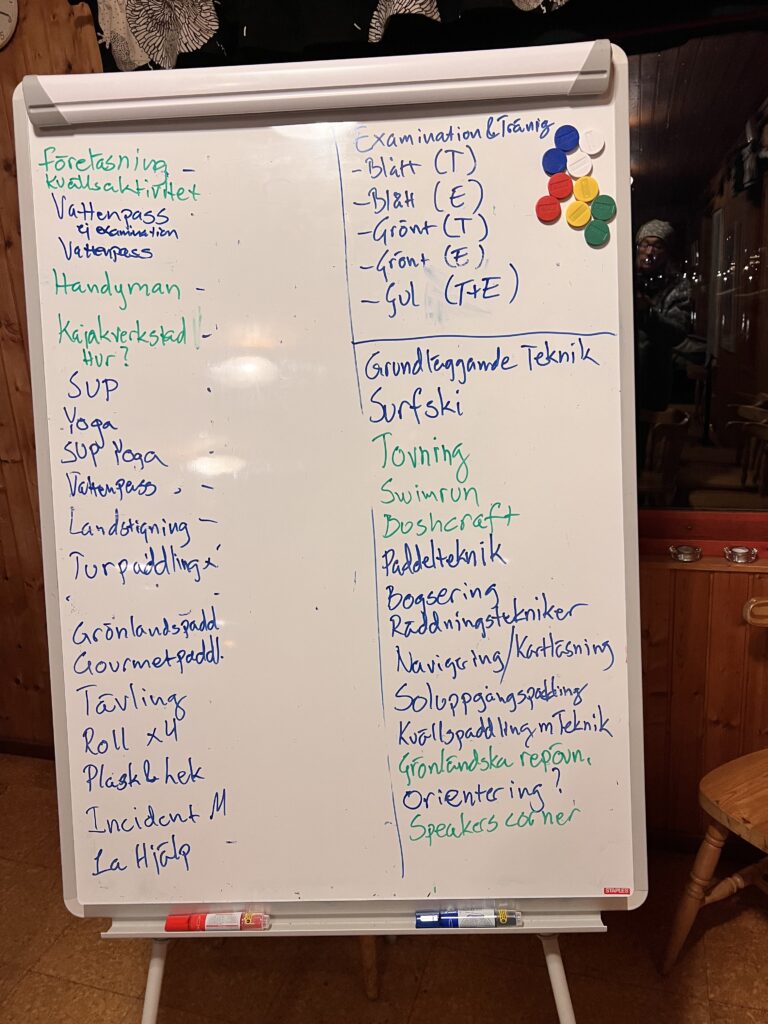 Företasning -
Kvällsaktivitet
Vattenpass
ej examination
Vattenpass
Handyman -
Kajakverkstad -
Hur?
SUP
Yoga
SUP Yoga
Vattenpass -
Landstigning -
Turpaddling x
Grönlandspadd
Gourmetpaddl.
Tävling
Roll x4
Plask & Lek
Incident M
La Hjälp
Examination & Tränig
- Blått (T)
- Blått (E)
- Grönt (T)
- Grönt (E)
- Gul (T+E)
Grundläggande Teknik
Surfski
Tovning
Swimrun
Bushcraft
Paddelteknik
Bogsering
Räddningstekniker
Navigering/Kartläsning
Soluppgångspaddling
Kvällspaddling m Teknik
Grönländska repövn.
Orientering?
Speakers corner
STAPLES